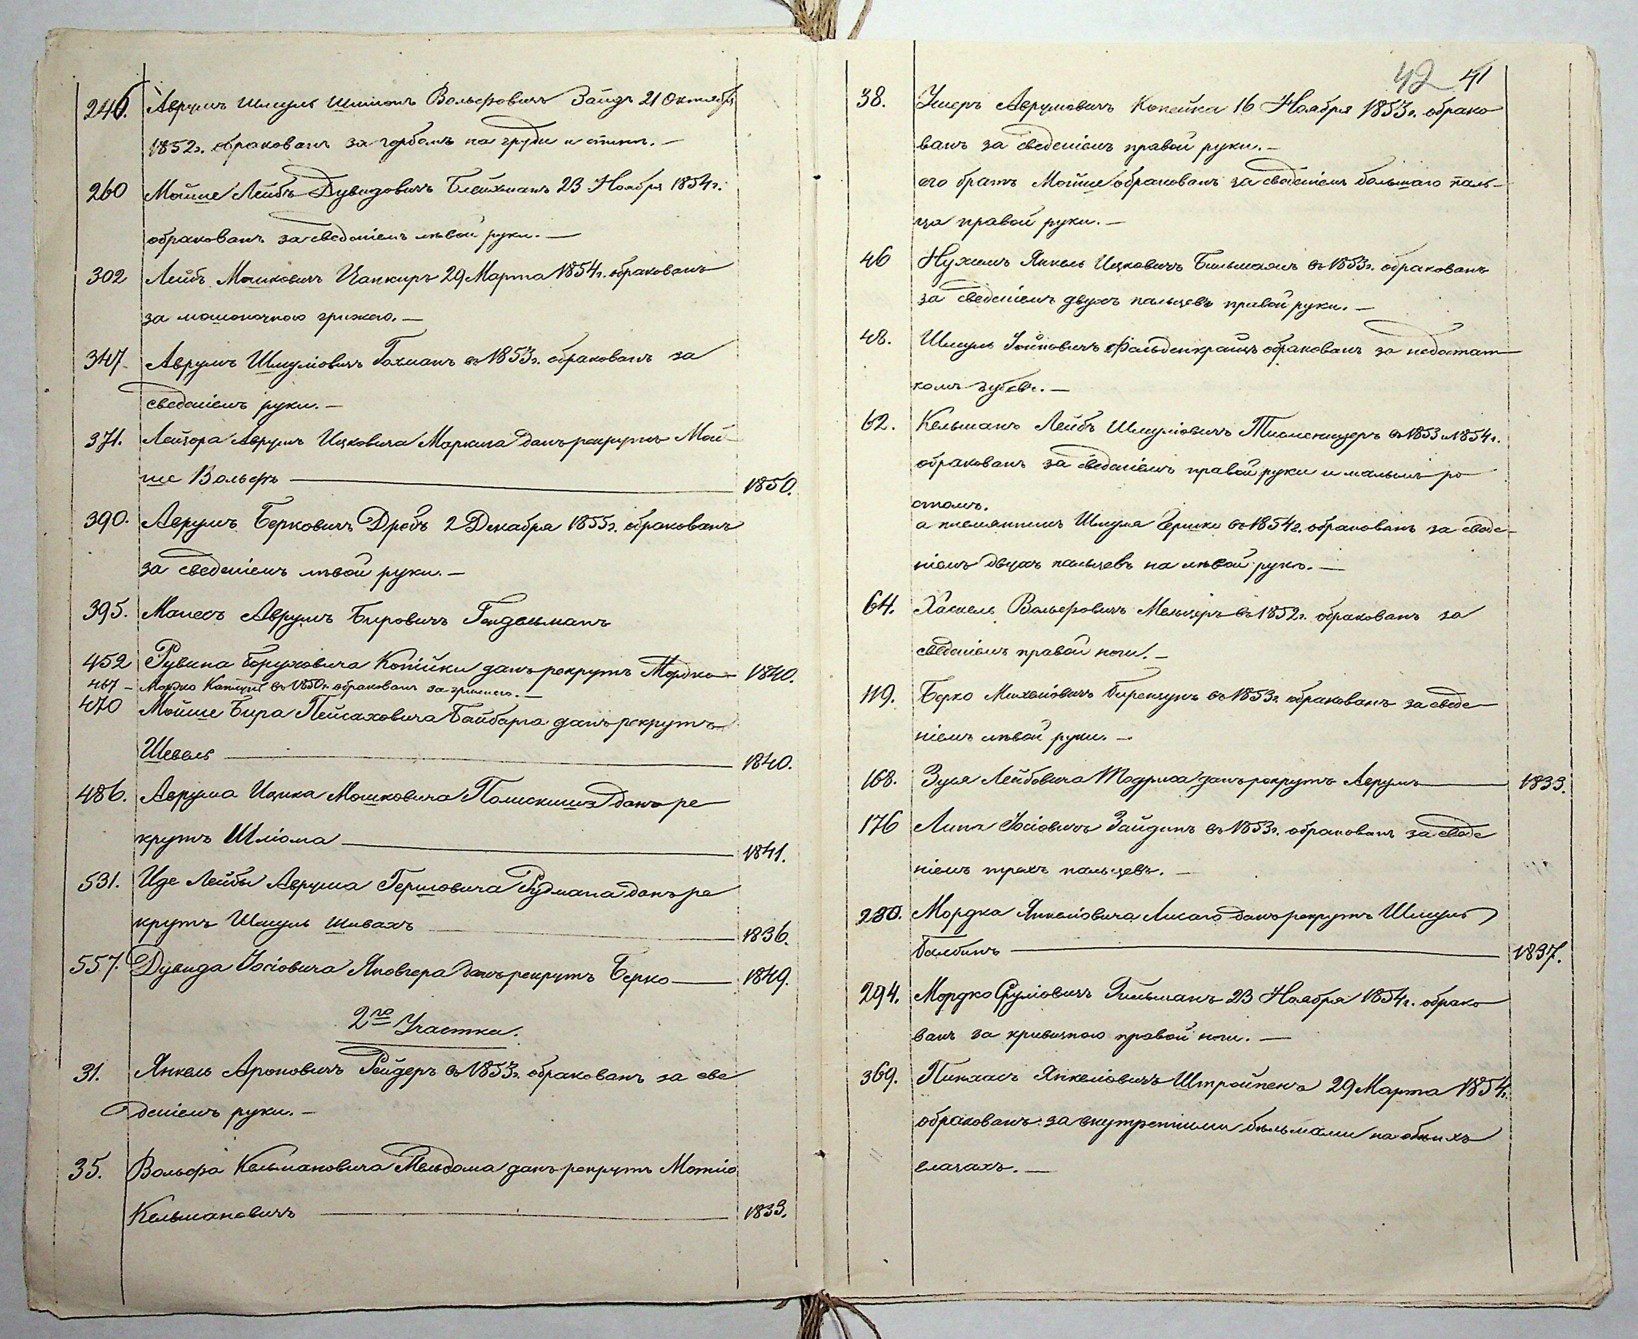 246. Аврумъ Шмуль Шимонъ Вольфовичъ Зайдъ 21 Октября
1852г. обракованъ за горбомъ на груди и спинѣ. —
260 Мойше Лейбъ Дувидовичъ Блейхманъ 23 Ноября 1854г.
обракованъ за сведеніемъ лѣвой руки. —
302 Лейбъ Мошковичъ Цанкиръ 29 Марта 1854г. обракованъ
за мошоночною грижею. —
347. Аврумъ Шмуліовичъ Гохманъ въ 1853г. обракованъ за
сведеніемъ руки. —
371. Лейзора Аврумъ Ицковича Маркина данъ рекрутъ Мой-
ше Вольфъ — 1850.
390. Аврумъ Берковичъ Дребъ 2 Декабря 1855г. обракованъ
за сведеніемъ лѣвой руки. —
395. Манесъ Аврумъ Бировичъ Гендельманъ
452 Рувина Боруховича Копійки данъ рекрутъ Мордко — 1840.
467 – Мордко въ 1850г. обракованъ за грижею. —
470 Мойше Бира Пейсаховича Байбарга данъ рекрутъ
Шевель — 1840.
486. Аврума Ицика Мошковича данъ ре
крутъ Шліома — 1841.
531. Иде Лейбы Аврума Гершовича Рудмана данъ ре
крутъ Шмуль Шивахъ — 1836.
557. Дувида Іосіовича Яновгера данъ рекрутъ Берко — 1849.
2го Участка.
31. Янкель Ароновичъ Рейдеръ въ 1853г. обракованъ за све
деніемъ руки. —
35. Вольфа Кельмановича данъ рекрутъ Мотіо
Кельмановичъ — 1833.
42 41
38. Ушеръ Аврумовичъ Копейка 16 Ноября 1853г. обрако
ванъ за сведеніемъ правой руки. —
его братъ Мойше обракованъ за сведеніемъ большаго паль-
ца правой руки. —
46 Нухимъ Янкель Ицковичъ Бильманъ въ 1853г. обракованъ
за сведеніемъ двухъ пальцевъ правой руки. —
48. Шмуль Іойновичъ Фельденкрайзъ обракованъ за недостат
комъ зубовъ. —
62. Кельманъ Лейбъ Шмуліовичъ въ 1853 и 1854г.
обракованъ за сведеніемъ правой руки и малымъ ро
стомъ.
а племянникъ Шмуля Гершко въ 1854г. обракованъ за сведе-
ніемъ двухъ пальцевъ на лѣвой рукѣ. —
64. Хаскель Вольфовичъ Мельцеръ въ 1852г. обракованъ за
сведеніемъ правой ноги. —
119. Берко Михелевичъ Биренцунъ въ 1853г. обракованъ за сведе
ніемъ лѣвой руки. —
168. Зуся Лейбовича данъ рекрутъ Аврумъ — 1833.
176 Липа Іосіовичъ Зайдинъ въ 1853г. обракованъ за сведе
ніемъ трехъ пальцевъ. —
280. Мордка Янкеліовича Лисаго данъ рекрутъ Шмуль
Бамбинъ — 1837.
294. Мордко Сруліовичъ Гильманъ 23 Ноября 1854г. обрако
ванъ за кривизною правой ноги. —
369. Пинхасъ Янкеліовичъ Штройненъ 29 Марта 1854г.
обракованъ за внутренними бѣльмами на обѣихъ
глазахъ. —